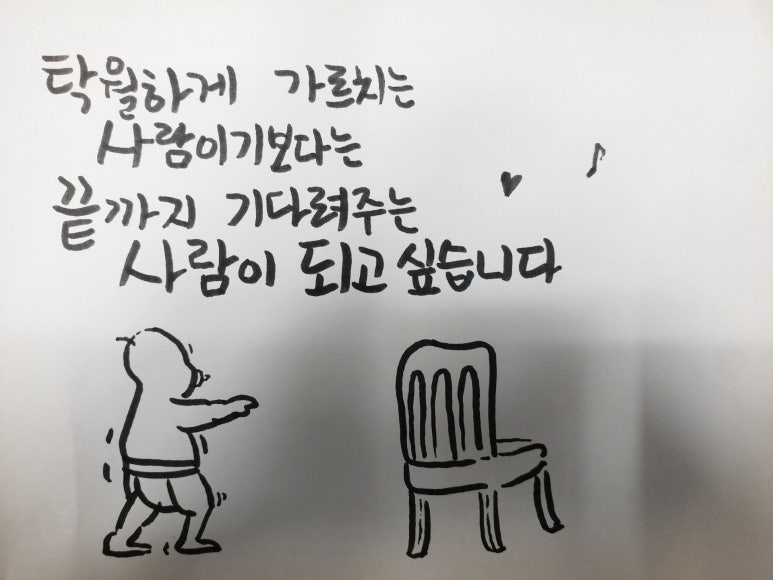 탁월하게 가르치는
사람이기보다는
끝까지 기다려주는
사람이 되고 싶습니다